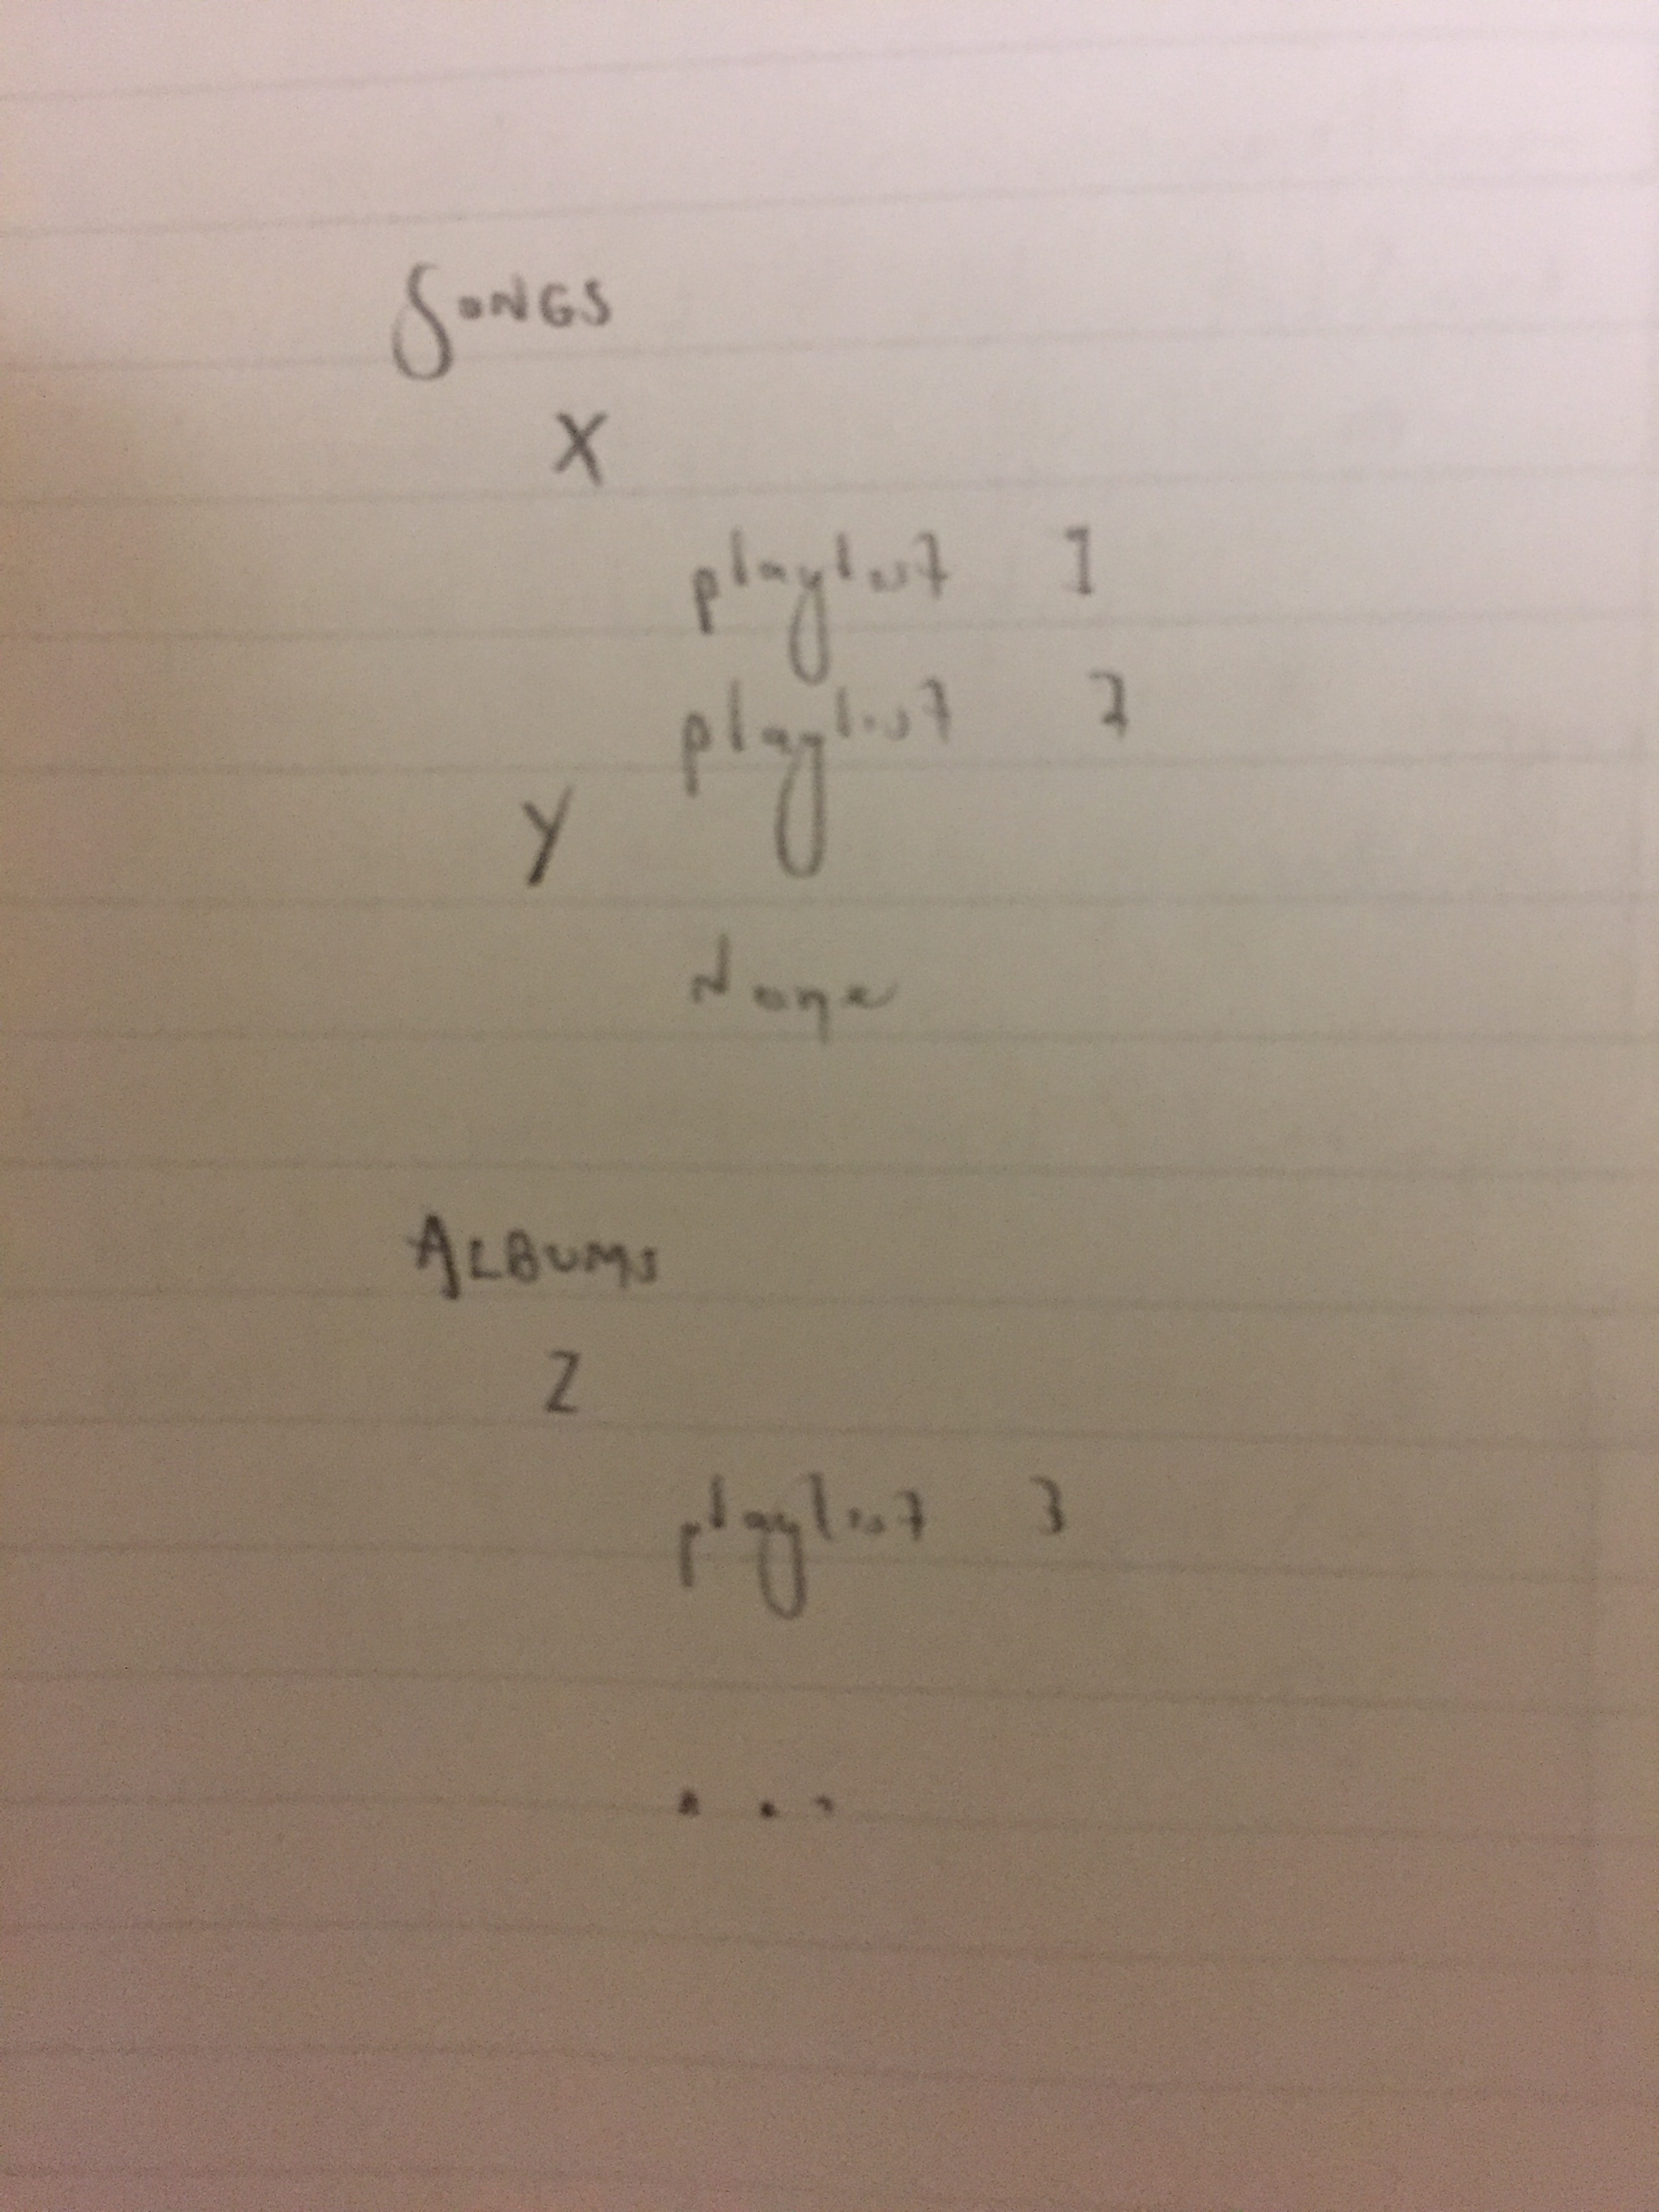 SONGS
X
playlist 1
playlist 2
Y
None
ALBUMS
Z
playlist 3
...